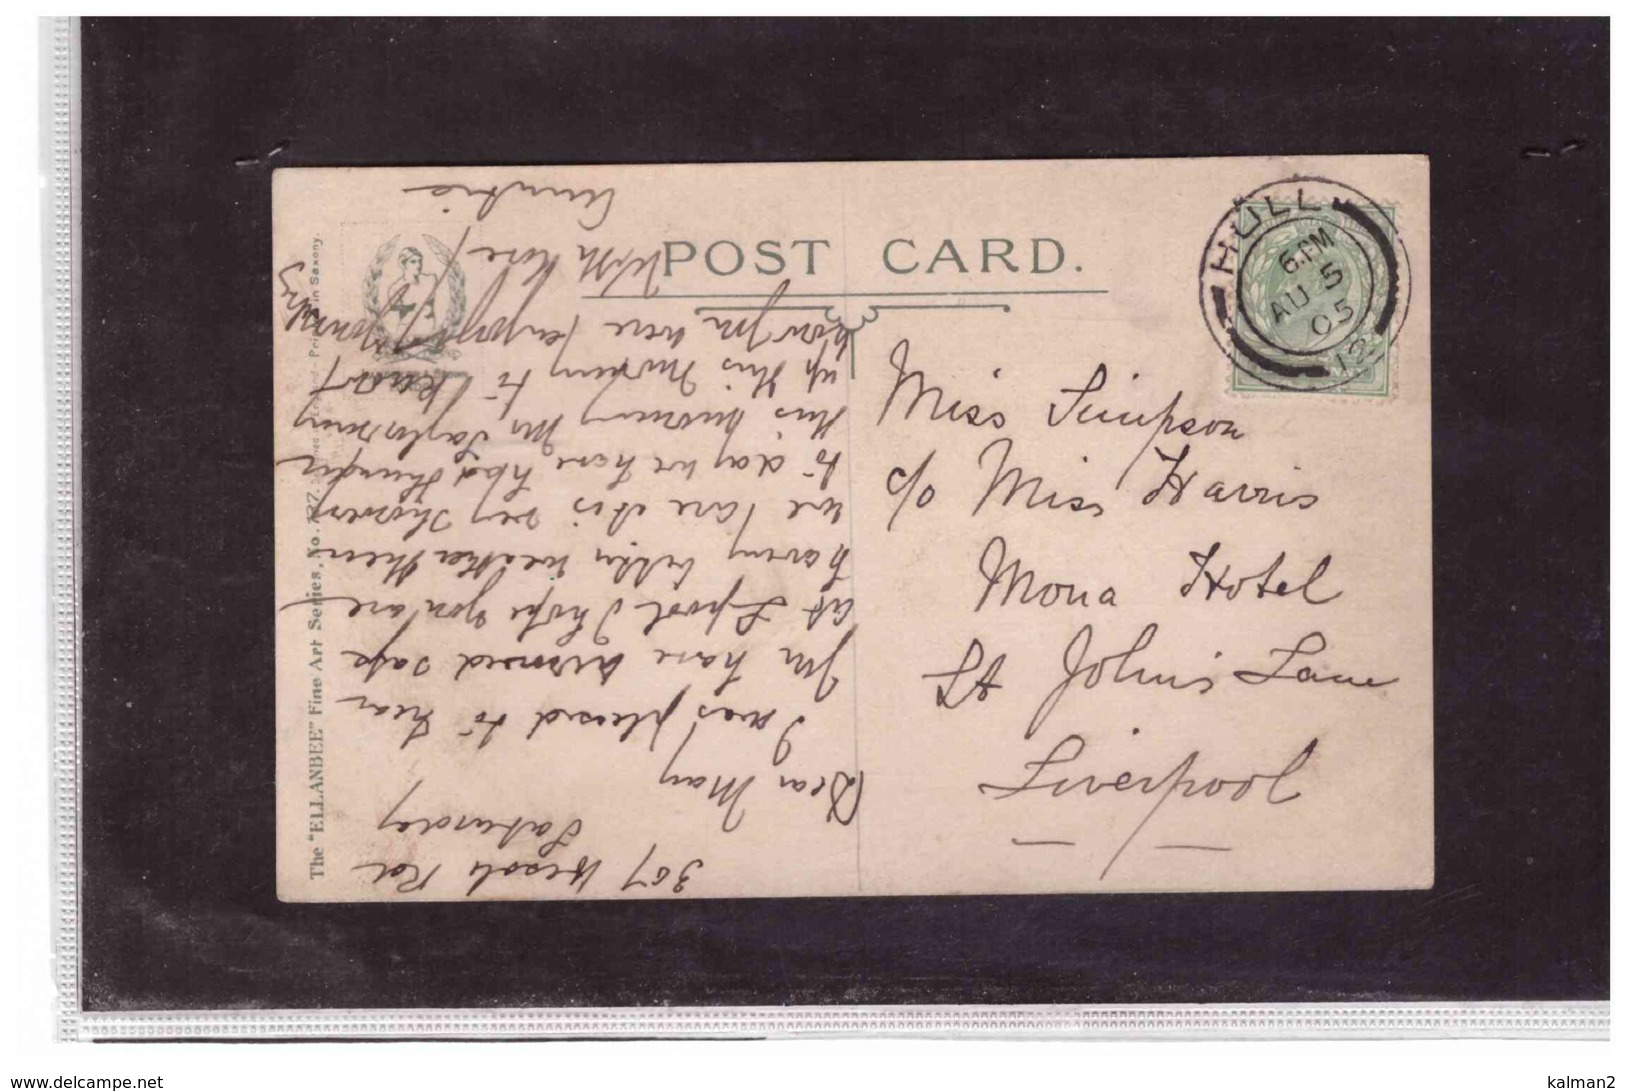 POST CARD.
HULL
6.PM
AU 5
05
12
Miss Simpson
c/o Miss Harris
Mona Hotel
St John's Lane
Liverpool
The "ELLANBEE" Fine Art Series, No. 127.
in Saxony.
307 Hessle Rd
Saturday
Dear May
I was pleased to hear
you have arrived safe
at Lpool I hope you are
having better weather then
we are it is very showery
to day we have had thunder
this morning Mr Taylor rung
up this morning to know
how you were enjoy yourself
With love
Auntie
www.delcampe.net
kalman2